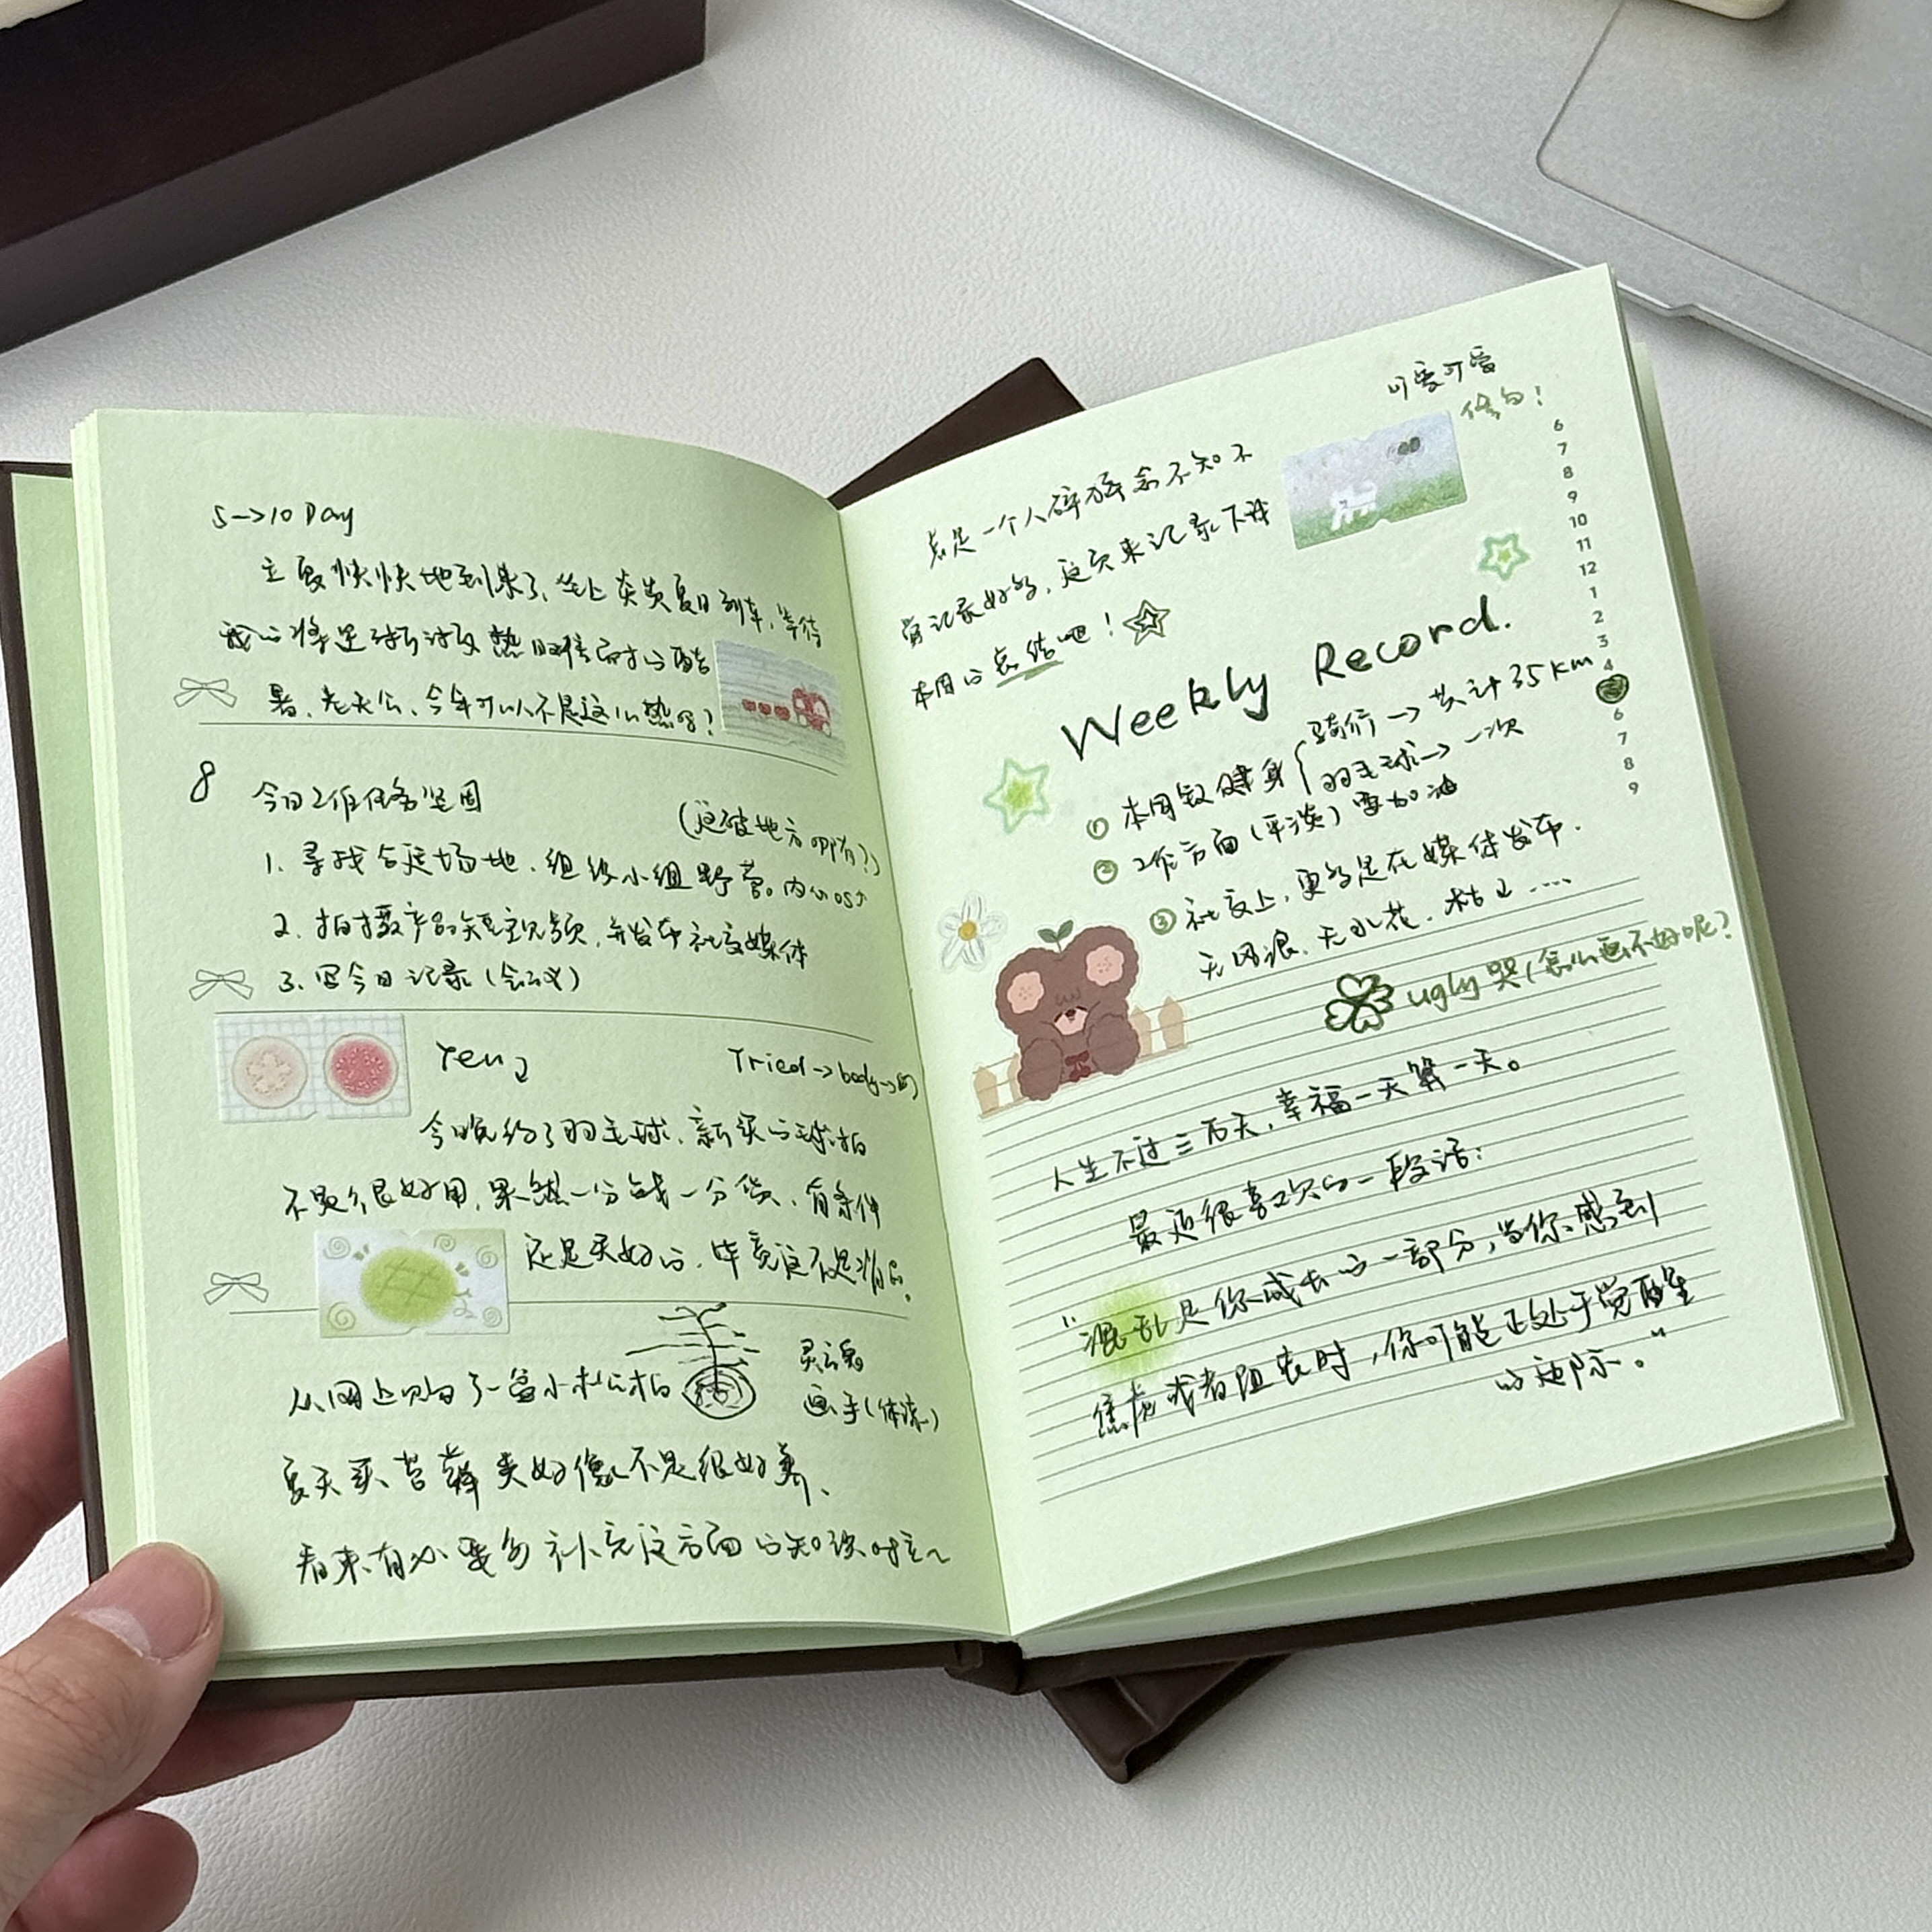 5→10 Day
立夏快快地到来了、坐上炎炎夏日列车,等待
我的将是 热 酷
暑、老天公、今年可以不是这么热吗?
8
今日工作任务
(这破地方 哪有?)
1. 寻找合适场地、组织小组野营。内心os
2. 拍摄产品短视频,并发布社交媒体
3. 写今日记录(会议)
Yeu
Tried→body→
今晚约了羽毛球、新买的球拍
不是很好用,果然一分钱一分货、有条件
还是买好的、毕竟这不是消
从网上购了一盆小松柏
灵魂
画手(体谅)
夏天买苔藓类好像不是很好养、
看来有必要多补充这方面的知识
可爱可爱
修勾!
总是一个人碎碎念不知不
觉记录好多,这页来记录下我
本周的总结吧!
Weekly Record.
① 本周 健身
骑行→共计35km
羽毛球→一次
② 工作方面(平淡)要加油
③ 社交上,更多是在媒体发布.
无风浪、无水花、
ugly 哭(怎么画不好呢?
人生不过三万天,幸福一天算一天。
最近很喜欢的一段话:
“混乱是你成长的一部分,当你感到
焦虑或者沮丧时,你可能正处于觉醒
的边际。”
6
7
8
9
10
11
12
1
2
3
4
6
7
8
9